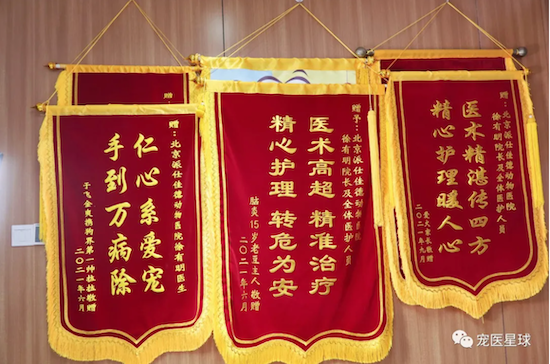 赠:北京派仕佳德动物医院徐有明医生
仁心系爱宠
手到万病除
二〇二一年六月
赠予:北京派仕佳德动物医院
徐有明院长及全体医护人员
医术高超 精准治疗
精心护理 转危为安
脑炎15岁老豆主人 敬赠
二〇二一年六月
赠:北京派仕佳德动物医院
徐有明院长及全体医护人员
医术精湛传四方
精心护理暖人心
二〇二一年九月
宠医星球